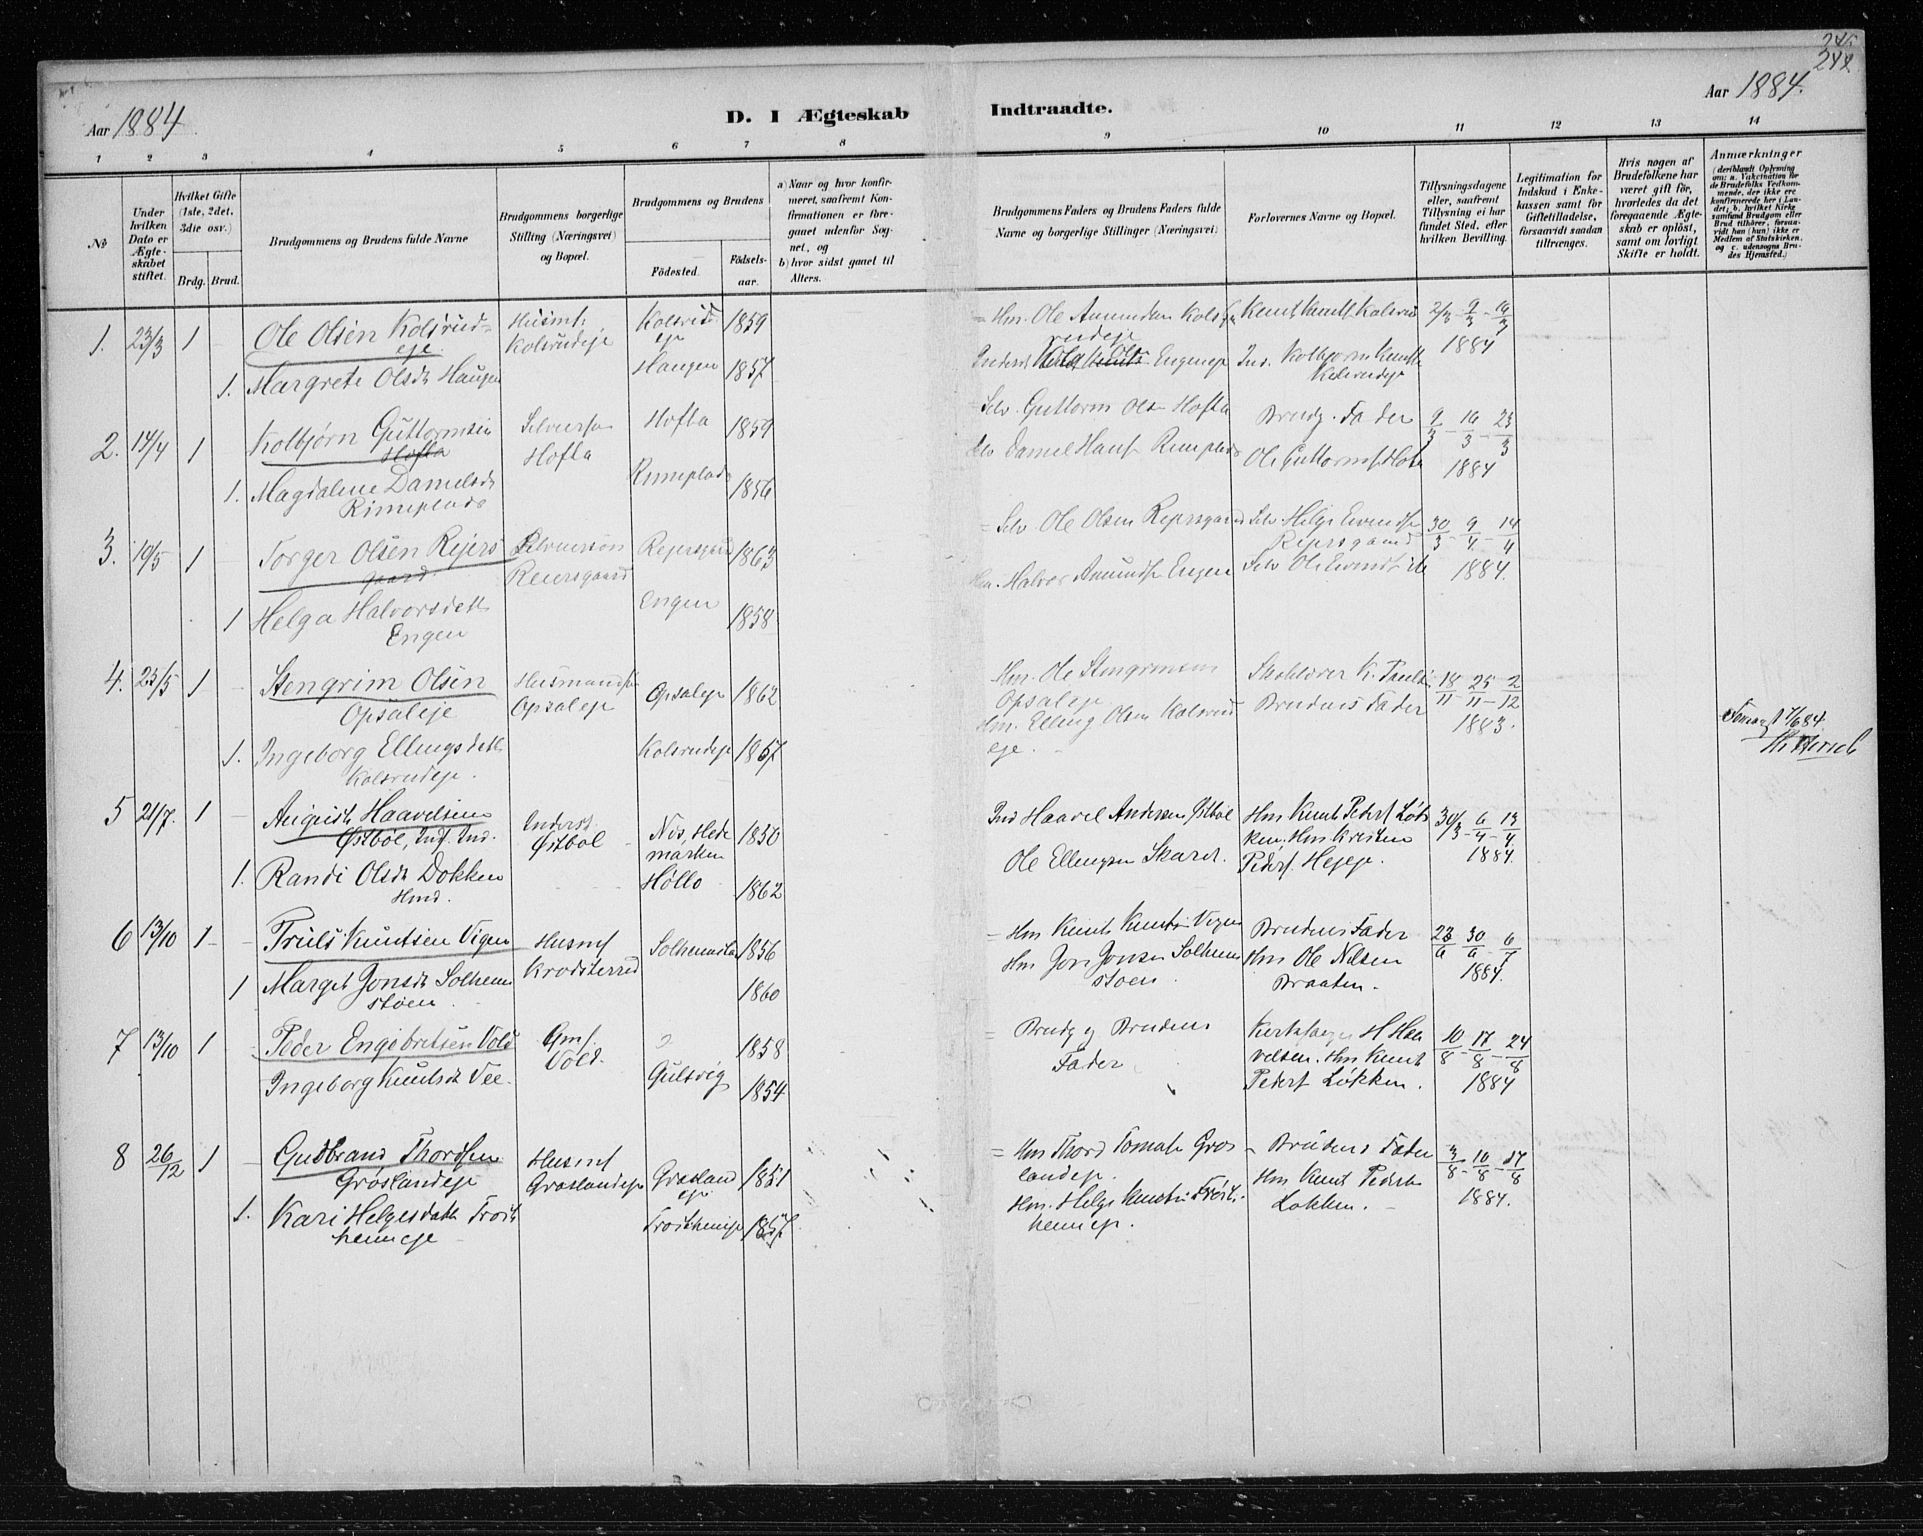 Aar 1884.
D. I Ægteskab Indtraadte.
Aar 1884.
244.
1 2 3 4 5 6 7 8 9 10 11 12 13 14
№
Under hvilken Dato er Ægteskabet stiftet.
Hvilket Gifte (1ste, 2det, 3die osv.)
Brdg. Brud.
Brudgommens og Brudens fulde Navne
Brudgommens borgerlige Stilling (Næringsvei) og Bopæl.
Brudgommens og Brudens
Födested.
Födselsaar.
a) Naar og hvor konfirmeret, saafremt Konfirmationen er foregaaet udenfor Sognet, og
b) hvor sidst gaaet til Alters.
Brudgommens Faders og Brudens Faders fulde Navne og borgerlige Stillinger (Næringsvei)
Forlovernes Navne og Bopæl.
Tillysningsdagene eller, saafremt Tillysning ei har fundet Sted, efter hvilken Bevilling.
Legitimation for Indskud i Enkekassen samt for Giftetilladelse, forsaavidt saadan tiltrænges.
Hvis nogen af Brudefolkene har været gift før, hvorledes da det foregaaende Ægteskab er oplöst, samt om lovligt Skifte er holdt.
Anmærkninger
1. 23/3 1 Ole Olsen Kolsrudeje Husmf. Kolsrudeje Kolsrudeje 1859
Hm. Ole Amundsen Kolsrudeje Knut Knutsf. Kolsrud 2/3 - 9/3 - 16/3 1884
1. Margrete Olsdt Haugen Haugen 1857
Engeneje Ind. Kolbjørn Knutsf. Kolsrudeje
2. 14/4 1 Kolbjørn Guttormsen Hofta Selveiersøn Hofta Hofta 1859
Selv. Guttorm Olsen Hofta Brudg. Fader 9/3 - 16/3 - 23/3 1884
1. Magdalene Danielsdt Rimeplads Rimeplads 1856
Selv Daniel Hansf Rimeplads Ole Guttormsf Hofta
3. 10/5 1 Torger Olsen Rejersgaard Selveiersøn Reiersgaard Rejersgaard 1863
Selv Ole Olsen Rejersgaard Selv Helge Evendsf Rejersgaard 30/3 - 9/4 - 14/4 1884.
1 Helga Halvorsdatt. Engen Engen 1858
Hm. Halvor Amundsf Engen Selv Ole Evendsf
4. 23/5 1 Stengrim Olsen Opsaleje Husmandsf Opsaleje Opsaleje 1862
Hm. Ole Stengrimsen Opsaleje Skolelærer K. 18/11 - 25/11 - 2/12 1883.
1. Ingeborg Ellingsdatt. Kolsrudeje. Kolsrudeje 1857
Hm. Elling Olsen Kolsrudeje. Brudens Fader
5 21/7. 1 August Haavelsen Østbøl, Inf. Ind. Inderst. Østbøl Nes, Hedemarken 1850
Ind Haavel Andersen Østbøl Hm Knut Pedersf Løkken. Hm Kristen Pedersf. Hejeje. 30/3 - 6/4 - 13/4 1884.
1. Randi Olsdt Dokken Hmd. Høllo 1862
Ole Ellingsen Skaret.
6 13/10 1 Truls Knutsen Vigen Husmf Krødsherred Solheimstøen 1856
Hm Knut Knutsen Vigen Brudens Fader 23/6 - 30/6 - 6/7 1884.
1 Margit Jonsdt Solheimstøen. 1860
Hm Jon Jonsen Solheimstøen. Hm Ole Nilsen Braaten.
7 13/10 1 Peder Engebretsen Vold Gmf. Vold. 1858
Brudg og Brudens Fader Kirkesanger H Haavelsen. Hm Knut Pedersf Løkken. 10/8 - 17/8 - 24/8 1884
Ingeborg Knutsdt Vee. Gulsvig 1854
8 26/12 1 Gudbrand Thordsen Grøslandeje Husmf Grøslandeje Grøslandeje 1851
Hm Thord Tomasen Grøslandeje. Brudens Fader 3/8 - 10/8 - 17/8 1884.
1. Kari Helgesdatt. Trostheimeje Trostheimeje 1857
Hm. Helge Knutsen Trostheimeje. Hm Knut Pedersen Løkken.